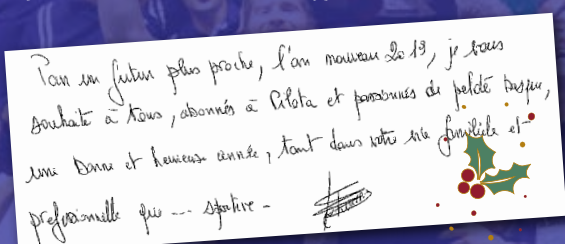 Pour un futur plus proche, l'an nouveau 2019, je vous
souhaite à tous, abonnés à Pilota et passionnés de pelote basque,
une bonne et heureuse année, tant dans votre vie familiale et
professionnelle que --- sportive -